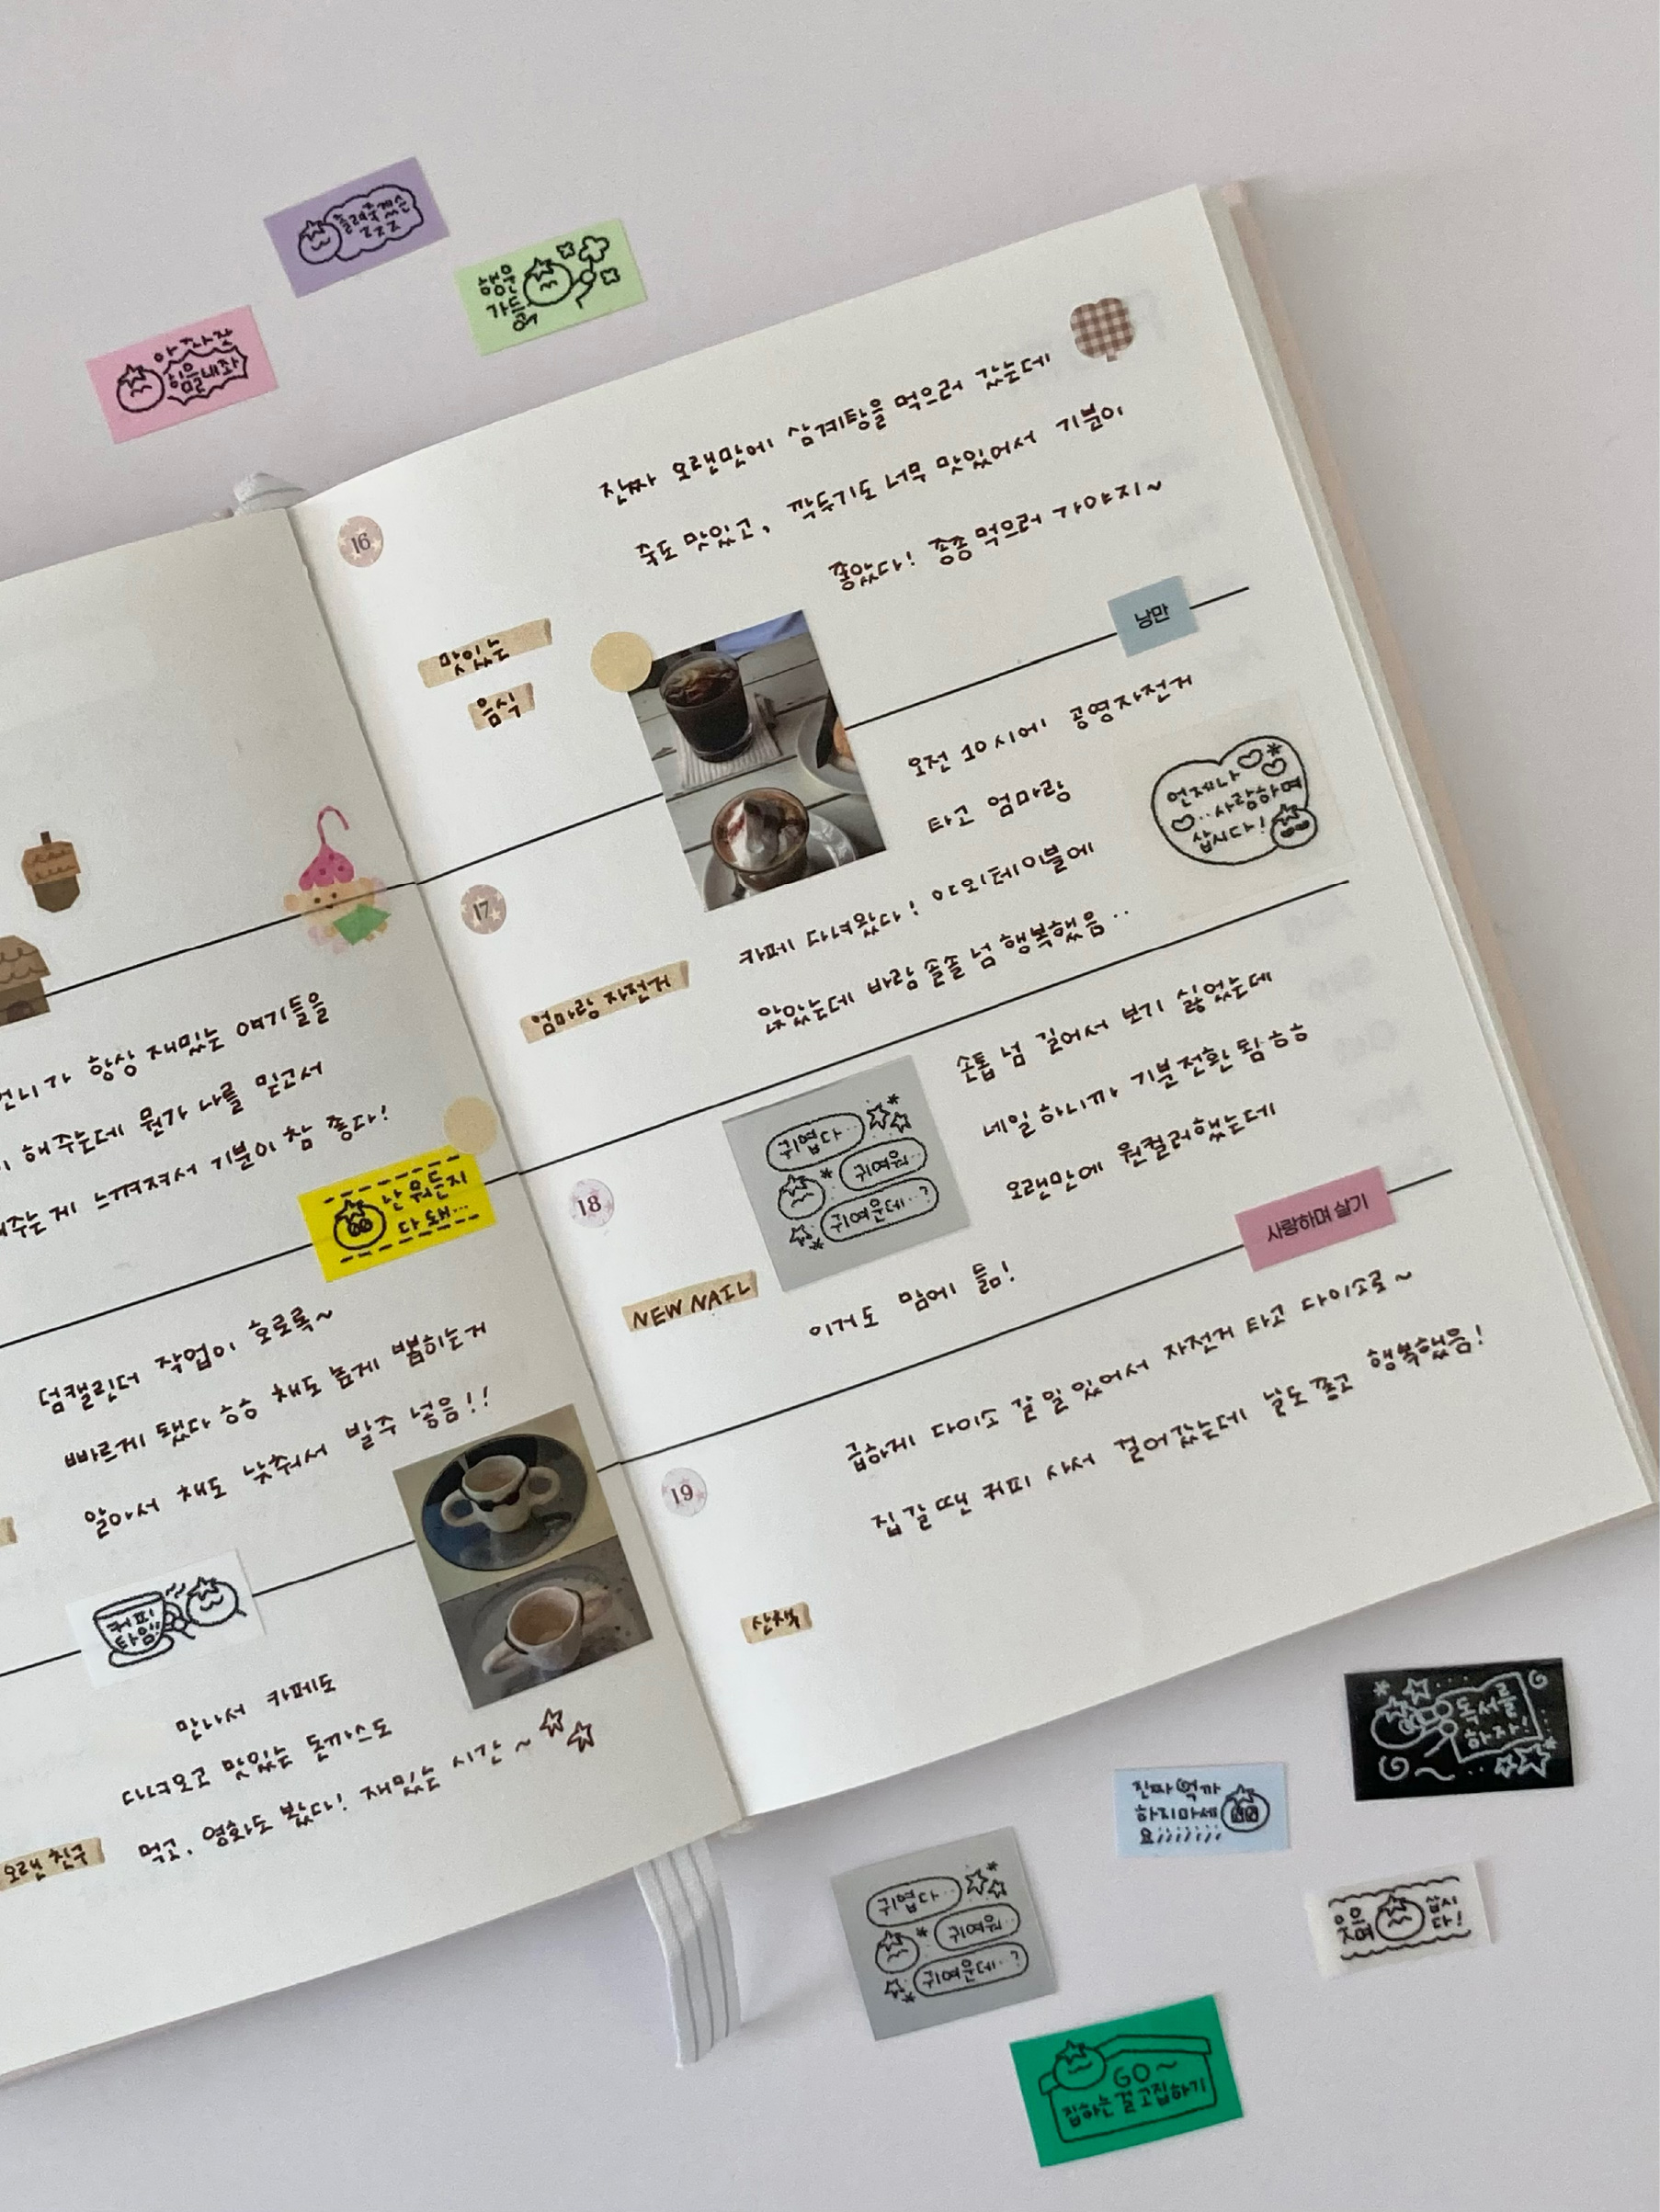 졸려죽겠슨
ZZZ
행운
가득
아자잣
힘을내좌
언니가 항상 재밌는 얘기들을
해주는데 뭔가 나를 믿고서
해주는게 느껴져서 기분이 참 좋다!
난 뭐든지
다 돼...
덤캘린더 작업이 호로록~
빠르게 됐다 흐흐 채도 높게 뽑히는거
알아서 채도 낮춰서 발주 넣음!!
커피
타임!!
만나서 카페도
다녀오고 맛있는 돈까스도
먹고, 영화도 봤다! 재밌는 시간~
오랜 친구
16
진짜 오랜만에 삼계탕을 먹으러 갔는데
죽도 맛있고, 깍두기도 너무 맛있어서 기분이
좋았다! 종종 먹으러 가야지~
맛있는
음식
낭만
17
오전 10시에 공영자전거
타고 엄마랑
카페 다녀왔다! 야외테이블에
앉았는데 바람 솔솔 넘 행복했음..
엄마랑 자전거
언제나
사랑하며
삽시다!
18
손톱 넘 길어서 보기 싫었는데
네일 하니까 기분전환 됨 흐흐
오랜만에 원컬러했는데
이거도 맘에 듦!
귀엽다..
귀여워..
귀여운데..?
NEW NAIL
사랑하며 살기
19
급하게 다이소 갈 일 있어서 자전거 타고 다이소로~
집 갈 땐 커피 사서 걸어갔는데 날도 좋고 행복했음!
산책
독서를
하자!
진짜 억까
하지마세
요!!!!!!!
귀엽다..
귀여워..
귀여운데..?
웃으며
삽시다!
GO~
집하는걸고집하기